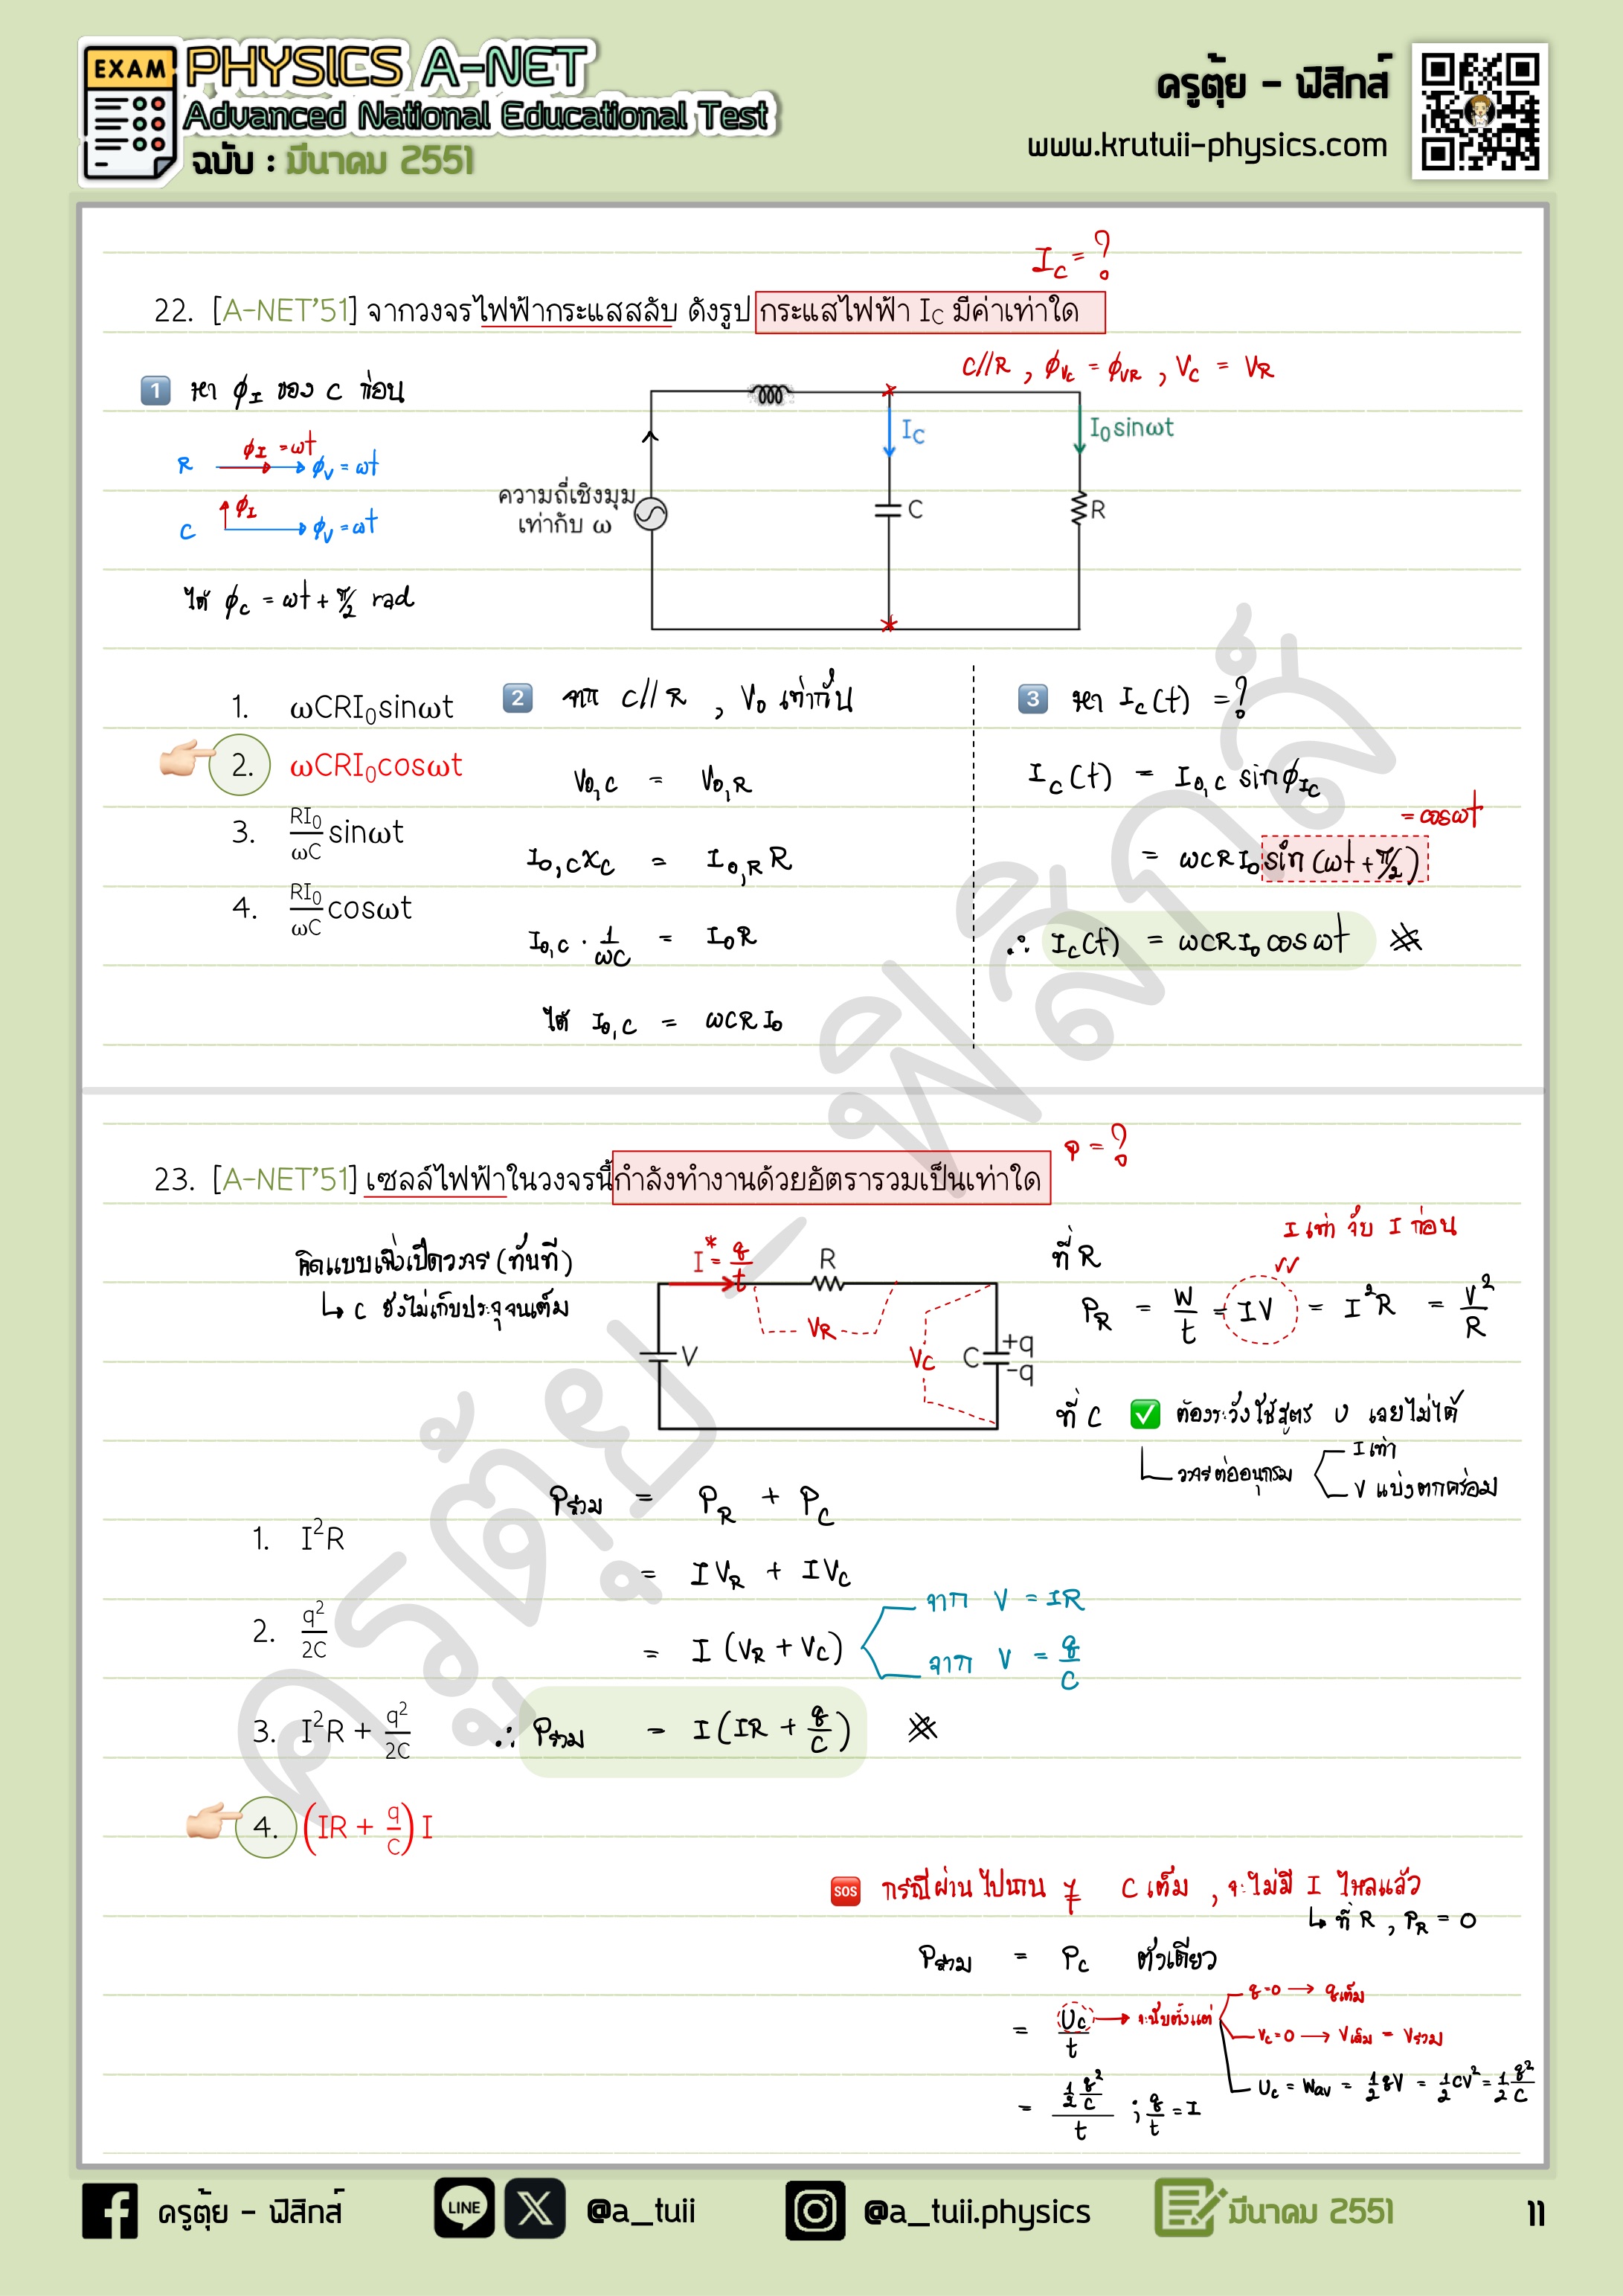 EXAM
PHYSICS A-NET
Advanced National Educational Test
ฉบับ : มีนาคม 2551
ครูตุ้ย - ฟิสิกส์
www.krutuii-physics.com
I_C = ?
22. [A-NET'51] จากวงจรไฟฟ้ากระแสสลับ ดังรูป กระแสไฟฟ้า I_C มีค่าเท่าใด
C//R , ϕ_VC = ϕ_VR , V_C = V_R
1 หา ϕ_I ของ C ก่อน
R ϕ_I = ωt ϕ_V = ωt
C ϕ_I ϕ_V = ωt
ได้ ϕ_C = ωt + π/2 rad
I_C
I₀sinωt
ความถี่เชิงมุม
เท่ากับ ω
C
R
1. ωCRI₀sinωt
2. ωCRI₀cosωt
3. RI₀/ωC sinωt
4. RI₀/ωC cosωt
2 จาก C//R , V₀ เท่ากัน
V₀,C = V₀,R
I₀,C X_C = I₀,R R
I₀,C · 1/ωC = I₀R
ได้ I₀,C = ωCRI₀
3 หา I_C(t) = ?
I_C(t) = I₀,C sinϕ_IC
= cosωt
= ωCRI₀ sin(ωt + π/2)
∴ I_C(t) = ωCRI₀ cosωt
P = ?
23. [A-NET'51] เซลล์ไฟฟ้าในวงจรนี้กำลังทำงานด้วยอัตรารวมเป็นเท่าใด
คิดแบบเพิ่งเปิดวงจร (ทันที)
↳ C ยังไม่เก็บประจุจนเต็ม
I* = q/t
R
V_R
V
V_C
C
+q
-q
I เท่า จับ I ก่อน
ที่ R
P_R = W/t = IV = I²R = V²/R
ที่ C ✅ ต้องระวังใช้สูตร U เลยไม่ได้
วงจรต่ออนุกรม
I เท่า
V แบ่งตกคร่อม
1. I²R
2. q²/2C
3. I²R + q²/2C
4. (IR + q/C) I
Pรวม = P_R + P_C
= IV_R + IV_C
= I (V_R + V_C)
จาก V = IR
จาก V = q/C
∴ Pรวม = I(IR + q/C)
SOS กรณีผ่านไปนาน ๆ C เต็ม , จะไม่มี I ไหลแล้ว
↳ ที่ R , P_R = 0
Pรวม = P_C ตัวเดียว
= U_C/t → จะนับตั้งแต่
q=0 → qเต็ม
V_C=0 → Vเต็ม = Vรวม
U_C = W_av = 1/2 qV = 1/2 CV² = 1/2 q²/C
= (1/2 q²/C)/t ; q/t = I
ครูตุ้ย - ฟิสิกส์
ครูตุ้ย - ฟิสิกส์
LINE
@a_tuii
@a_tuii.physics
มีนาคม 2551
11